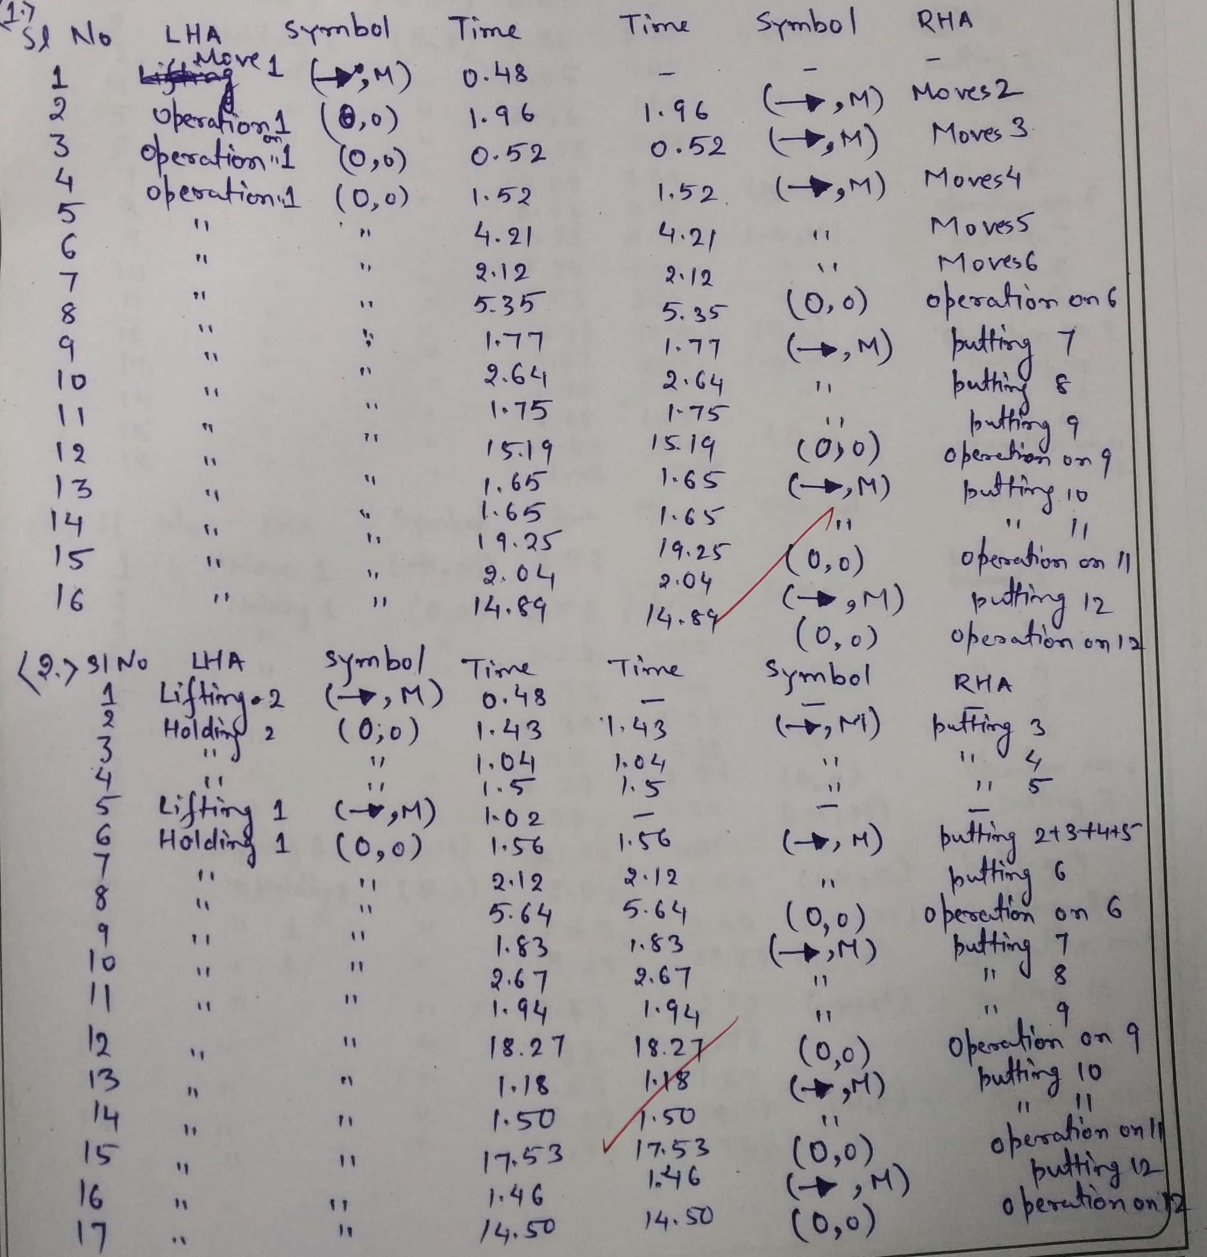 <1.>
Sl No LHA Symbol Time Time Symbol RHA
1 Move 1 (→, M) 0.48 – – –
2 operation 1 (0,0) 1.96 1.96 (→, M) Moves 2
3 operation on 1 (0,0) 0.52 0.52 (→, M) Moves 3
4 operation " 1 (0,0) 1.52 1.52 (→, M) Moves 4
5 " " 4.21 4.21 " Moves 5
6 " " 2.12 2.12 " Moves 6
7 " " 5.35 5.35 (0,0) operation on 6
8 " " 1.77 1.77 (→, M) putting 7
9 " " 2.64 2.64 " putting 8
10 " " 1.75 1.75 " putting 9
11 " " 15.19 15.19 (0,0) operation on 9
12 " " 1.65 1.65 (→, M) putting 10
13 " " 1.65 1.65 " " 11
14 " " 19.25 19.25 (0,0) operation on 11
15 " " 2.04 2.04 (→, M) putting 12
16 " " 14.89 14.89 (0,0) operation on 12
<2.> Sl No LHA Symbol Time Time Symbol RHA
1 Lifting 2 (→, M) 0.48 – – –
2 Holding 2 (0,0) 1.43 1.43 (→, M) putting 3
3 " " 1.04 1.04 " " 4
4 " " 1.5 1.5 " " 5
5 Lifting 1 (→, M) 1.02 – – –
6 Holding 1 (0,0) 1.56 1.56 (→, M) putting 2+3+4+5
7 " " 2.12 2.12 " putting 6
8 " " 5.64 5.64 (0,0) operation on 6
9 " " 1.83 1.83 (→, M) putting 7
10 " " 2.67 2.67 " " 8
11 " " 1.94 1.94 " " 9
12 " " 18.27 18.27 (0,0) operation on 9
13 " " 1.18 1.18 (→, M) putting 10
14 " " 1.50 1.50 " " 11
15 " " 17.53 17.53 (0,0) operation on 11
16 " " 1.46 1.46 (→, M) putting 12
17 " " 14.50 14.50 (0,0) operation on 12